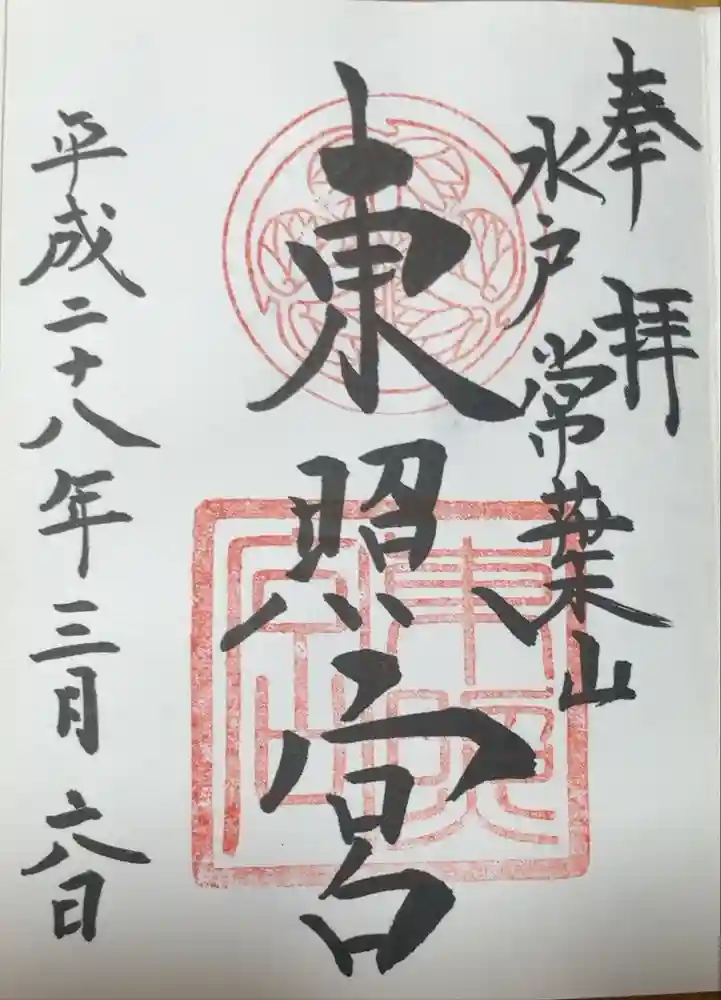 奉拝
水戸常葉山
東照宮
平成二十八年三月六日